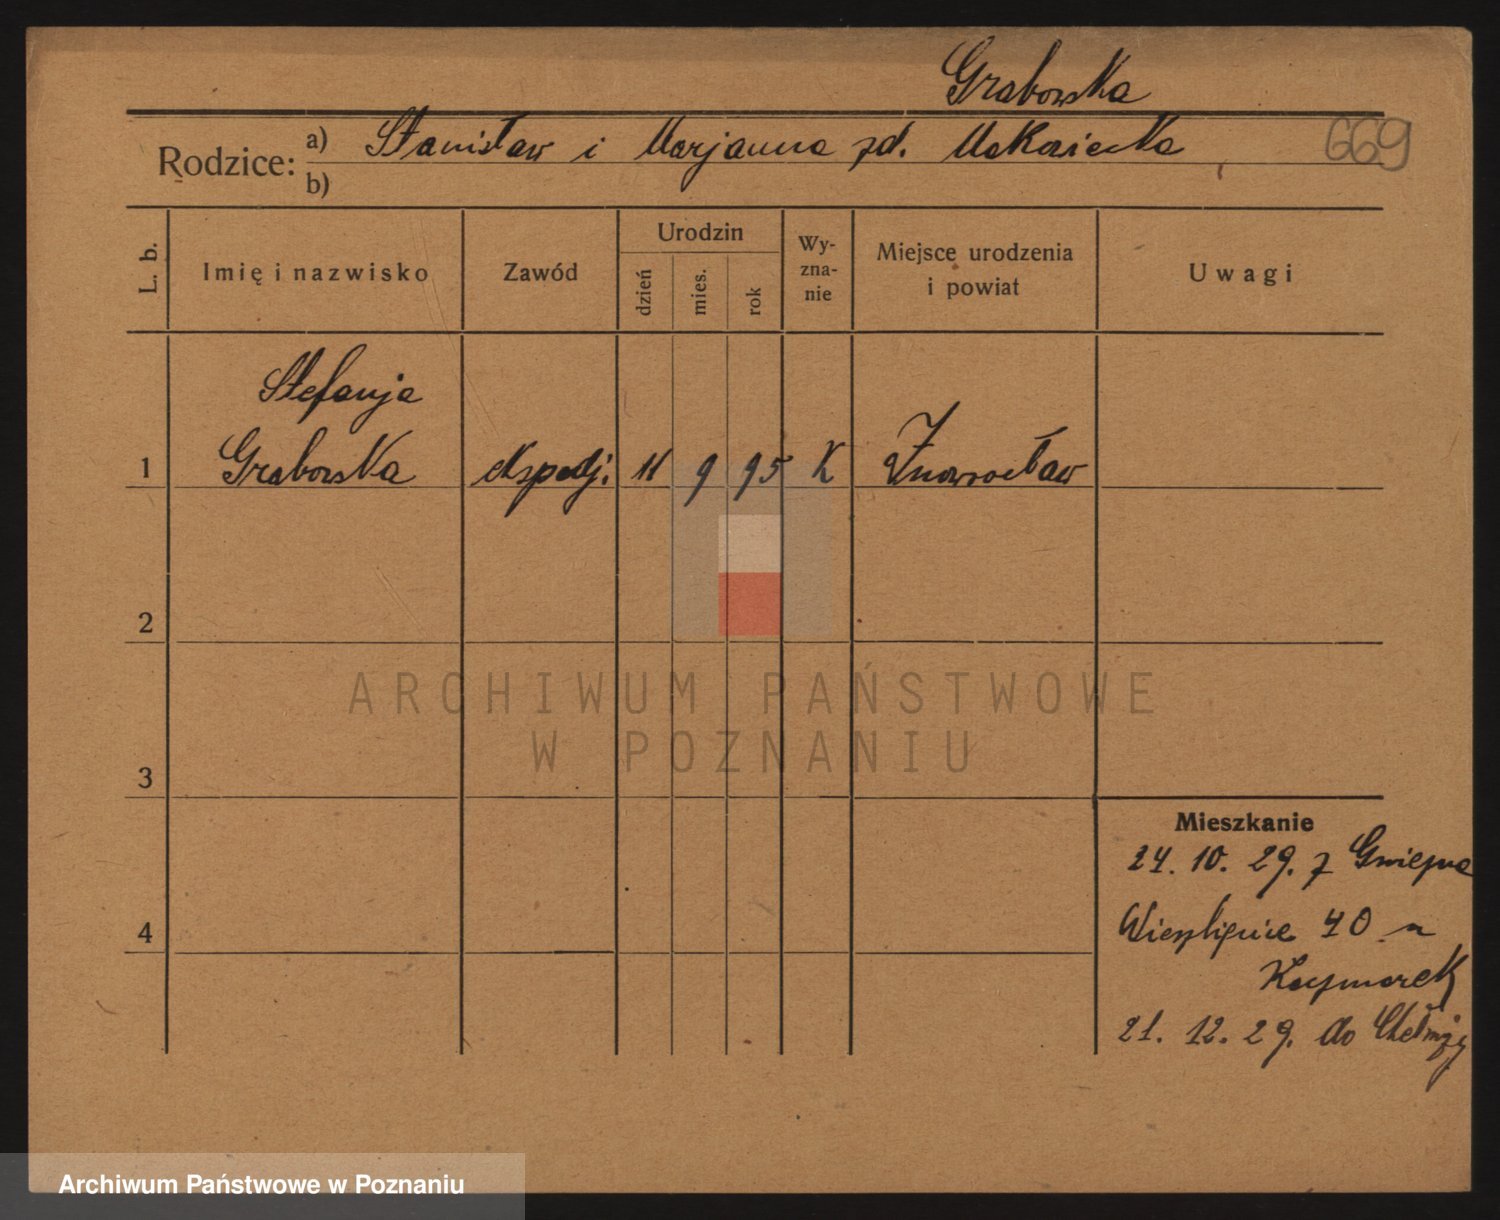 Grabowska
Rodzice: a) Stanisław i Marjanna zd. Makowiecka 669
b)
L. b. Imię i nazwisko Zawód Urodzin dzień mies. rok Wy-zna-nie Miejsce urodzenia i powiat Uwagi
Stefanja
1 Grabowska ekspedj. 11 9 95 K Inowrocław
2
ARCHIWUM PAŃSTWOWE
W POZNANIU
3
Mieszkanie
24. 10. 29. z Gniezna
4 40 u
Kaczmarek
21. 12. 29. do Chełmży
Archiwum Państwowe w Poznaniu